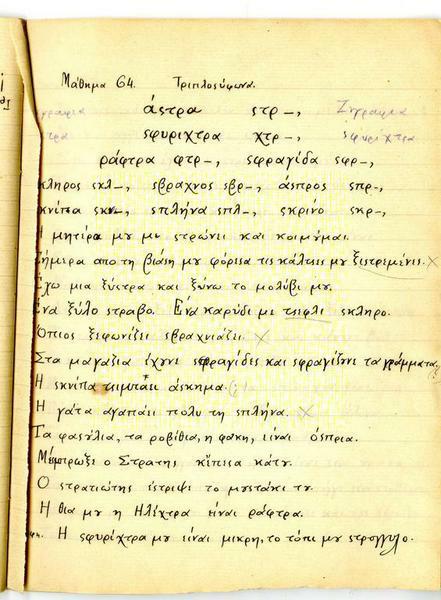 Μάθημα 64. Τριπλοσύφωνα.
άστρα στρ–, Ζγραφια
σφυρίχτρα χτρ–, σφυρίχτρα
ράφτρα φτρ–, σφραγίδα σφρ–,
κληρος σκλ–, σβράχνος σβρ–, άσπρος σπρ–,
κνίπα σκν–, σπλήνα σπλ–, σκρίνο σκρ–,
Η μητέρα μυ με στρώνει και κοιμύμαι.
Σήμερα απο τη βιάση μυ φόρισα τις κάλτσες μυ ξεστρεμένις. ×
Έχω μια ξύστρα και ξύνω το μολύβι μυ.
Ενα ξύλο στραβο. Ενα καρύδι με τσέφλι σκληρο.
Όπιος ξεφωνίζει σβραχνιάζει. ×
Στα μαγαζια έχυνε σφραγίδες και σφραγίζυνε τα γράμματα.
Η σκνίπα τσιμπάει άσκημα.
Η γάτα αγαπάει πολυ τη σπλήνα. ×
Τα φασύλια, τα ροβίθια, η φακη, είναι όσπρια.
Μ' έσπρωξε ο Στρατης κ' έπεσα κάτυ.
Ο στρατιώτης έστριψε το μυστάκι τυ.
Η θια μυ η Ηλέχτρα είναι ράφτρα.
Η σφυρίχτρα μυ είναι μικρη, το τόπι μυ στρογγυλο.